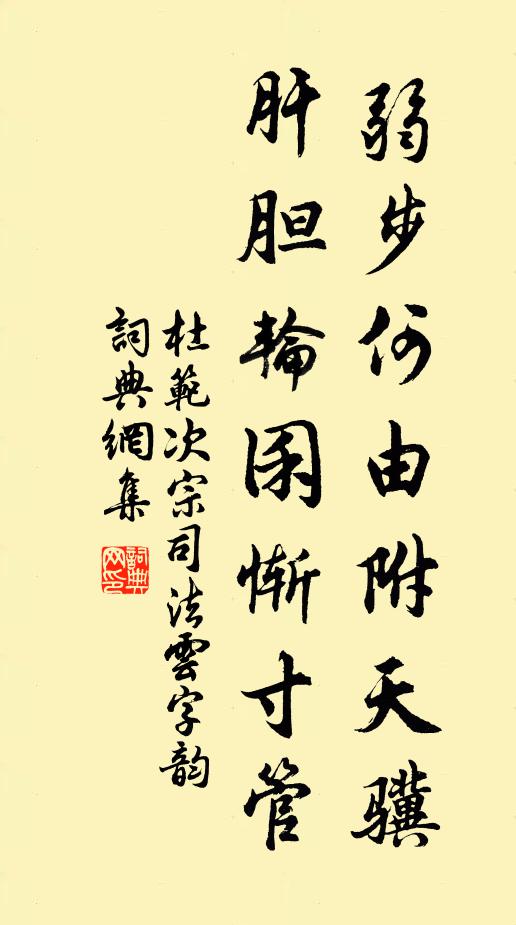 弱步何由附天骥
肝胆輪囷慚寸管
杜範次宗司法雲字韵
詞典網集
詞典网印